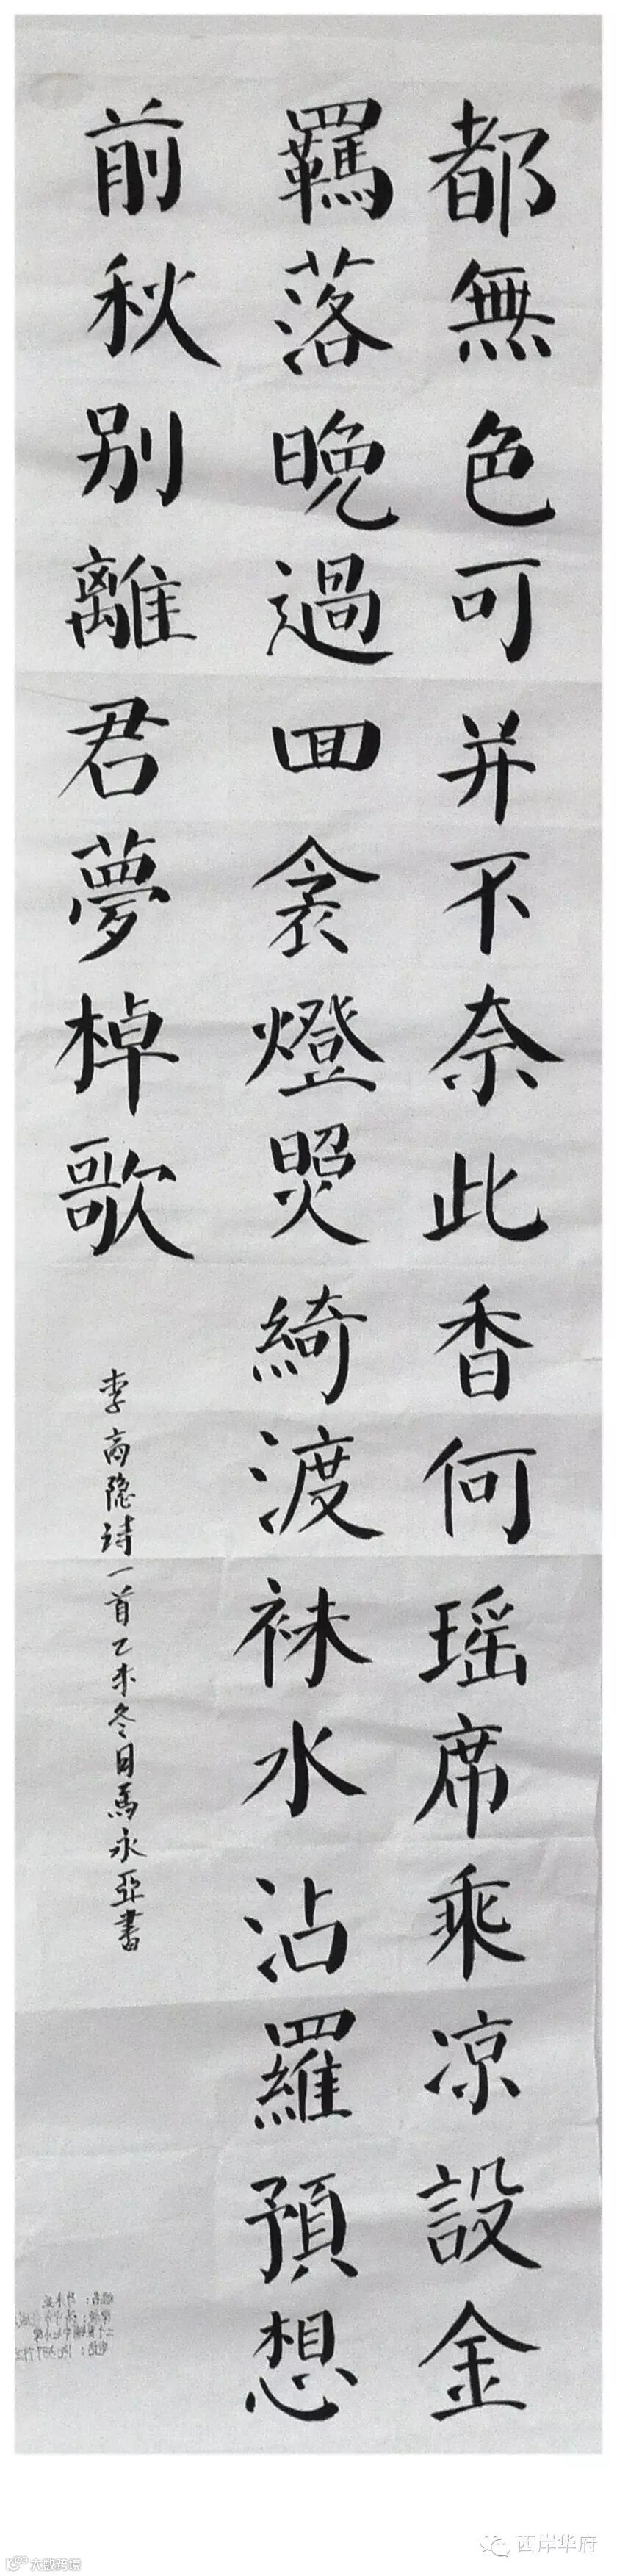 都無色可并不奈此香何瑶席乘凉設金
羈落晚過囬衾燈照綺渡袜水沾羅預想
前秋别離君夢棹歌
李商隐詩一首乙未冬日馬永亞書
西岸华府